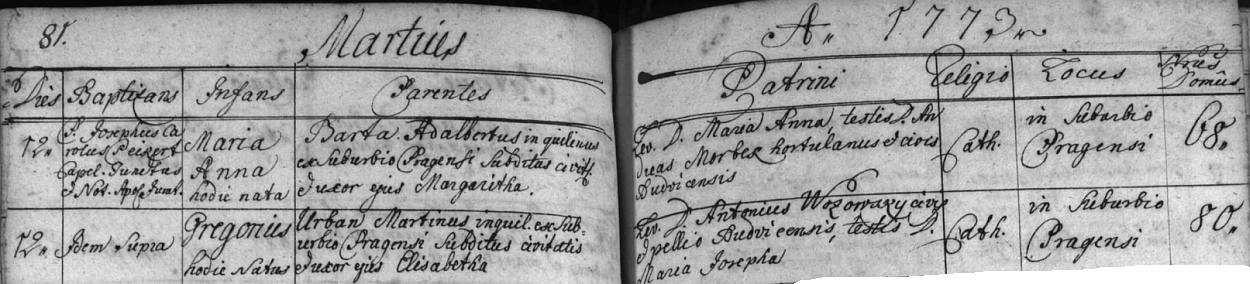 81.
Martius
A. 1773.
Dies Baptizans Infans Parentes
Patrini Religio Locus Nrus Domûs
12.
P. Josephus Ca
rolus Peikert
Capel. Junctus
& Not. Apost. Jurat.
Maria
Anna
hodie nata
Barta Adalbertus inquilinus
ex Suburbio Pragensi Subditus civitt.
& uxor ejus Margaritha.
Lev. D. Maria Anna, testis D. An
dreas Morbex hortulanus & civis
Budvicensis
Cath.
in Suburbio
Pragensi
68.
12.
Idem supra
Gregorius
hodie Natus
Urban Martinus inquil. ex Sub-
urbio Pragensi Subditus civitatis
& uxor ejus Elisabetha
Lev. D. Antonius Wozowazy civis
& pellio Budvicensis, testis D.
Maria Josepha
Cath.
in Suburbio
Pragensi
80.